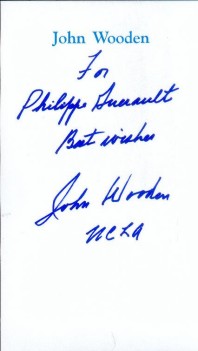 John Wooden
For
Philippe Guerault
Best wishes
John Wooden
UCLA